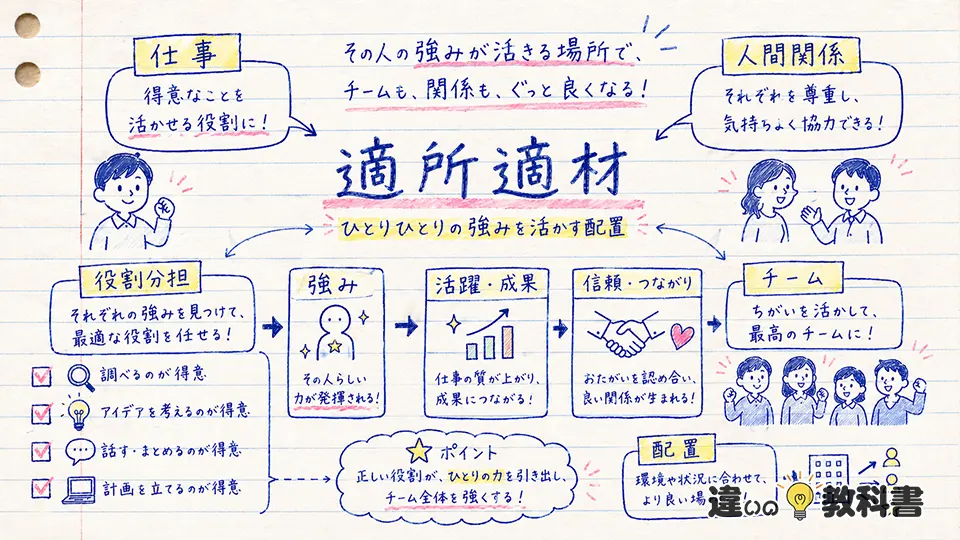 仕事
得意なことを
活かせる役割に!
その人の強みが活きる場所で、
チームも、関係も、ぐっと良くなる!
人間関係
それぞれを尊重し、
気持ちよく協力できる!
適所適材
ひとりひとりの強みを活かす配置
役割分担
それぞれの強みを見つけて、
最適な役割を任せる!
調べるのが得意
アイデアを考えるのが得意
話す・まとめるのが得意
計画を立てるのが得意
強み
その人らしい
力が発揮される!
活躍・成果
仕事の質が上がり、
成果につながる!
信頼・つながり
おたがいを認め合い、
良い関係が生まれる!
チーム
ちがいを活かして、
最高のチームに!
ポイント
正しい役割が、ひとりの力を引き出し、
チーム全体を強くする!
配置
環境や状況に合わせて、
より良い場
違いの教科書